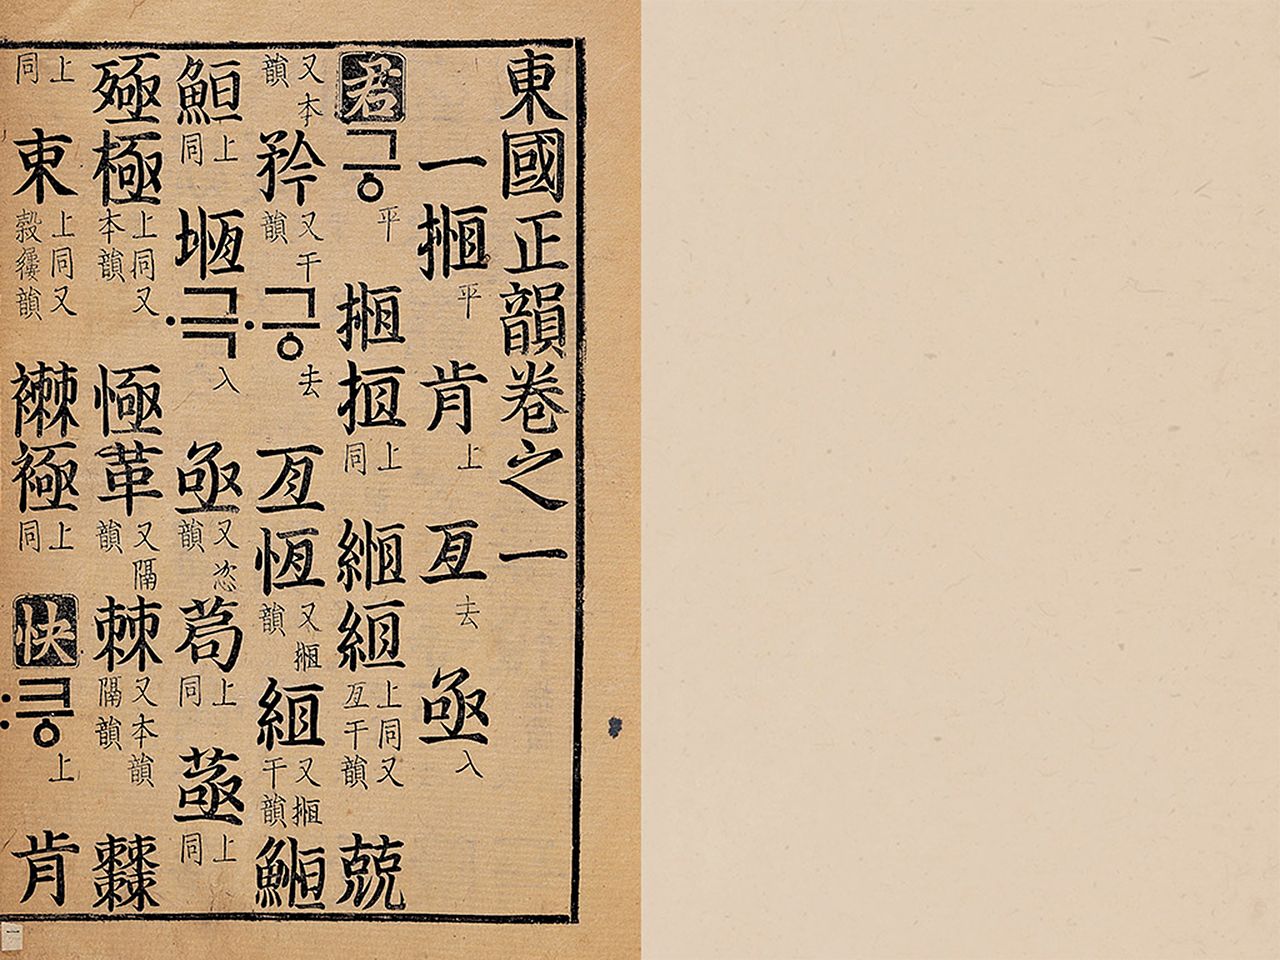 東國正韻卷之一
一揯平肯上亙去亟入
君긍平揯搄上同縆絚上同又亙干韻兢
又本韻矜又干韻·긍去亙恆又揯韻絚又揯干韻䱭
上同堩·극入亟又恣韻茍上同上同
殛極上同又本韻㥛革又隔韻棘又本韻隔韻
上同朿上同又韻襋上同快:킁上肯
一